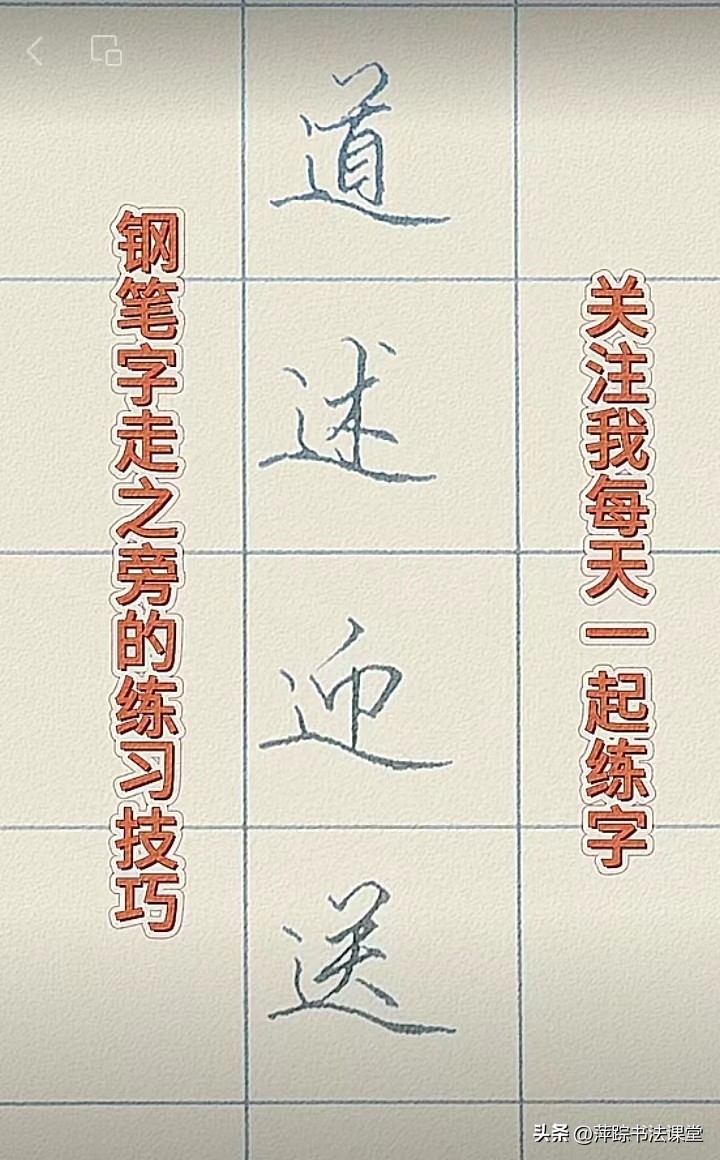 钢笔字走之旁的练习技巧
道
述
迎
送
关注我每天一起练字
头条 @萍踪书法课堂